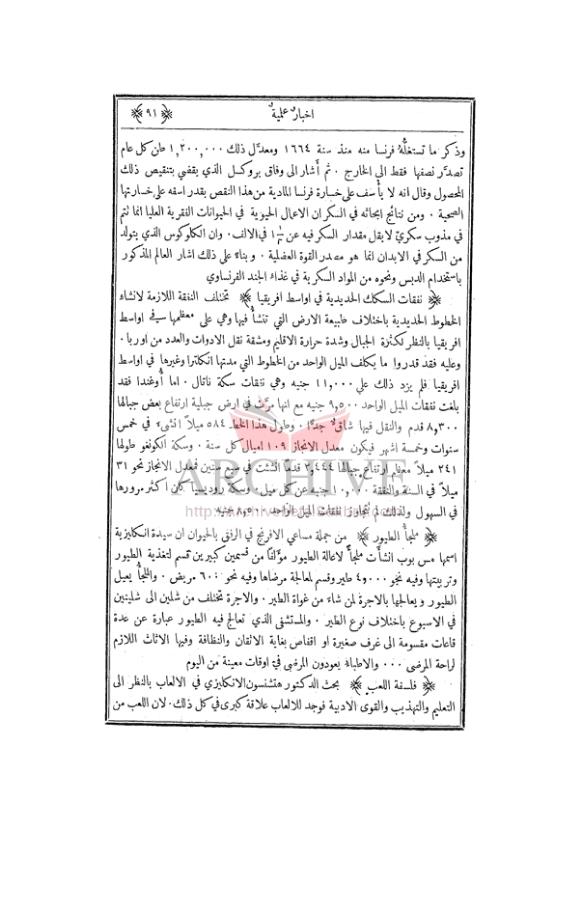 اخبار علمية ﴿ ٩١ ﴾
وذكر ما تستغلّه فرنسا منه منذ سنة ١٦٦٤ ومعدّل ذلك ١,٢٠٠,٠٠٠ طن كل عام
تصدّر نصفها فقط الى الخارج . ثم أشار الى وفاق بروكسل الذي يقضي بتنقيص ذلك
المحصول وقال انه لا يأسف على خسارة فرنسا المادية من هذا النقص بقدر اسفه على خسارتها
الصحية . ومن نتائج ابحاثه في السكر ان الاعمال الحيوية في الحيوانات الفقرية العليا انما تتم
في مذوب سكري لا يقل مقدار السكر فيه عن في الالف . وان الكلوكوس الذي يتولد
من السكر في الابدان انما هو مصدر القوة العضلية . وبناءً على ذلك اشار العالم المذكور
باستخدام الدبس ونحوه من المواد السكرية في غذاء الجند الفرنساوي
﴿ نفقات السكك الحديدية في اواسط افريقيا ﴾ تختلف النفقة اللازمة لانشاء
الخطوط الحديدية باختلاف طبيعة الارض التي تنشأ فيها وهي على معظمها في اواسط
افريقيا بالنظر لكثرة الجبال وشدة حرارة الاقليم ومشقة نقل الادوات والعدد من اوربا .
وعليه فقد قدروا ما يكلف الميل الواحد من الخطوط التي مدتها انكلترا وغيرها في اواسط
افريقيا فلم يزد ذلك على ١١,٠٠٠ جنيه وهي نفقات سكة ناتال . اما أوغندا فقد
بلغت نفقات الميل الواحد ٩,٥٠٠ جنيه مع انها مرّت في ارض جبلية ارتفاع بعض جبالها
٨,٣٠٠ قدم والنقل فيها شاق جدًّا . وطول هذا الخط ٥٨٤ ميلاً انشئ في خمس
سنوات وخمسة اشهر فيكون معدل الانجاز ١٠٩ اميال كل سنة . وسكة الكونغو طولها
٢٤١ ميلاً معظم ارتفاع جبالها ٢,٤٤٤ قدمًا انشئت في سنين فمعدل الانجاز نحو ٣١
ميلاً في السنة والنفقة ١٠,٠٠٠ جنيه عن كل ميل . وسكة روديسيا كان اكثر مرورها
في السهول ولذلك لم تتجاوز نفقات الميل الواحد ٨,٥٠٠ جنيه
﴿ ملجأ الطيور ﴾ من جملة مساعي الافرنج في الرفق بالحيوان ان سيدة انكليزية
اسمها مس بوب انشأت ملجأً لاعالة الطيور مؤلفًا من قسمين كبيرين قسم لتغذية الطيور
وتربيتها وفيه نحو ٤,٠٠٠ طير وقسم لمعالجة مرضاها وفيه نحو ٦٠٠ مريض . والملجأ يعيل
الطيور ويعالجها بالاجرة لمن شاء من غواة الطير . والاجرة تختلف من شلين الى شلينين
في الاسبوع باختلاف نوع الطير . والمستشفى الذي تعالج فيه الطيور عبارة عن عدة
قاعات مقسومة الى غرف صغيرة او اقفاص بغاية الاتقان والنظافة وفيها الاثاث اللازم
لراحة المرضى ٠٠٠ والاطباء يعودون المرضى في اوقات معينة من اليوم
﴿ فلسفة اللعب ﴾ بحث الدكتور هتشنسون الانكليزي في الالعاب بالنظر الى
التعليم والتهذيب والقوى الادبية فوجد للالعاب علاقة كبرى في كل ذلك . لان اللعب من
ARCHIVE